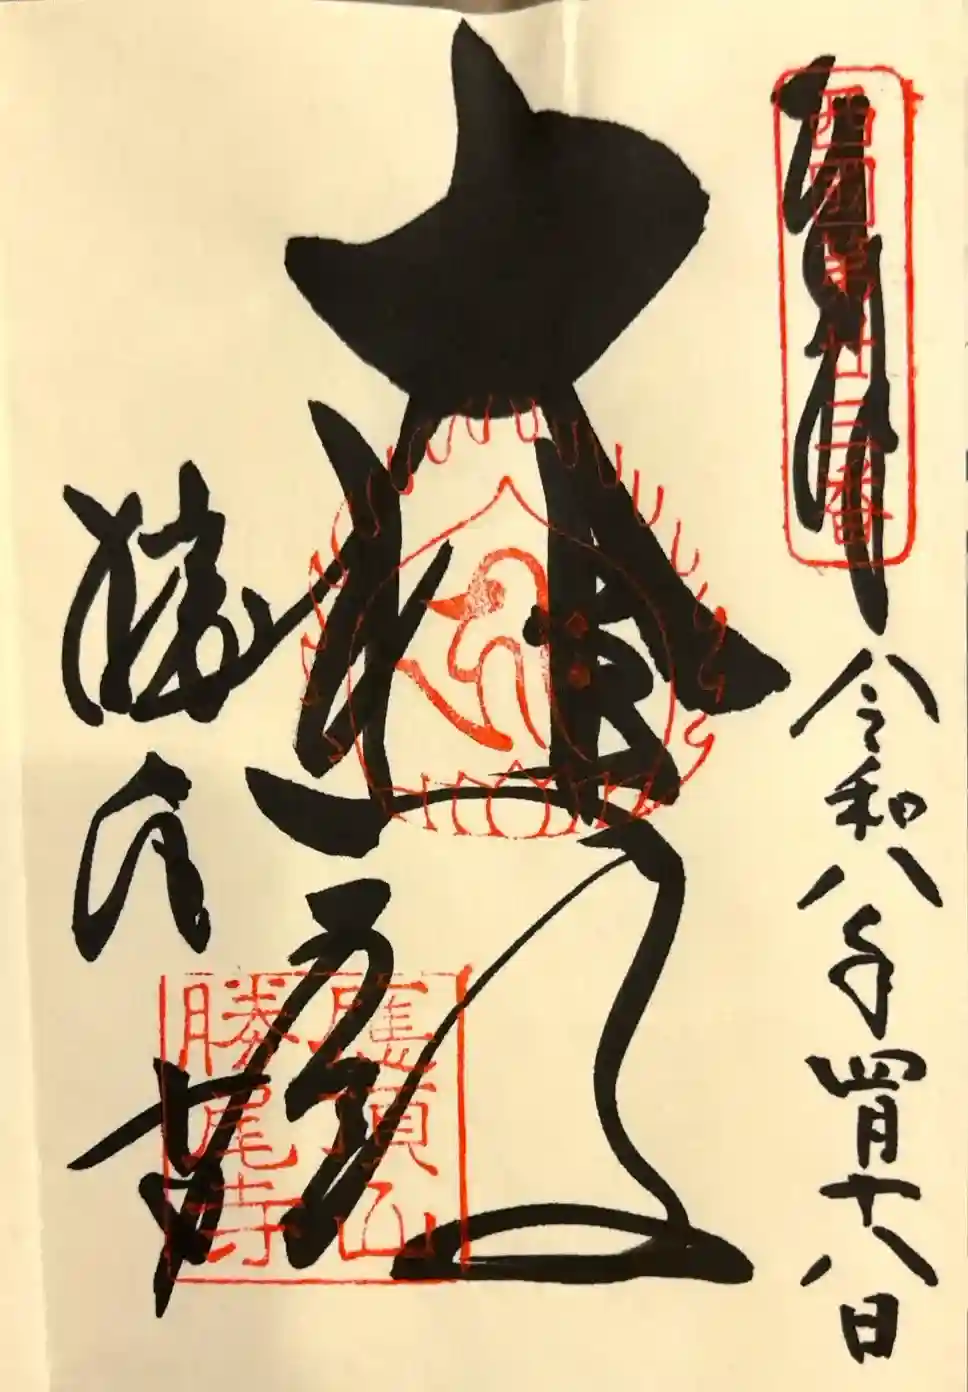 奉拝
西國第廿三番
令和八年四月十八日
大悲殿
應頂山
勝尾寺
勝尾寺